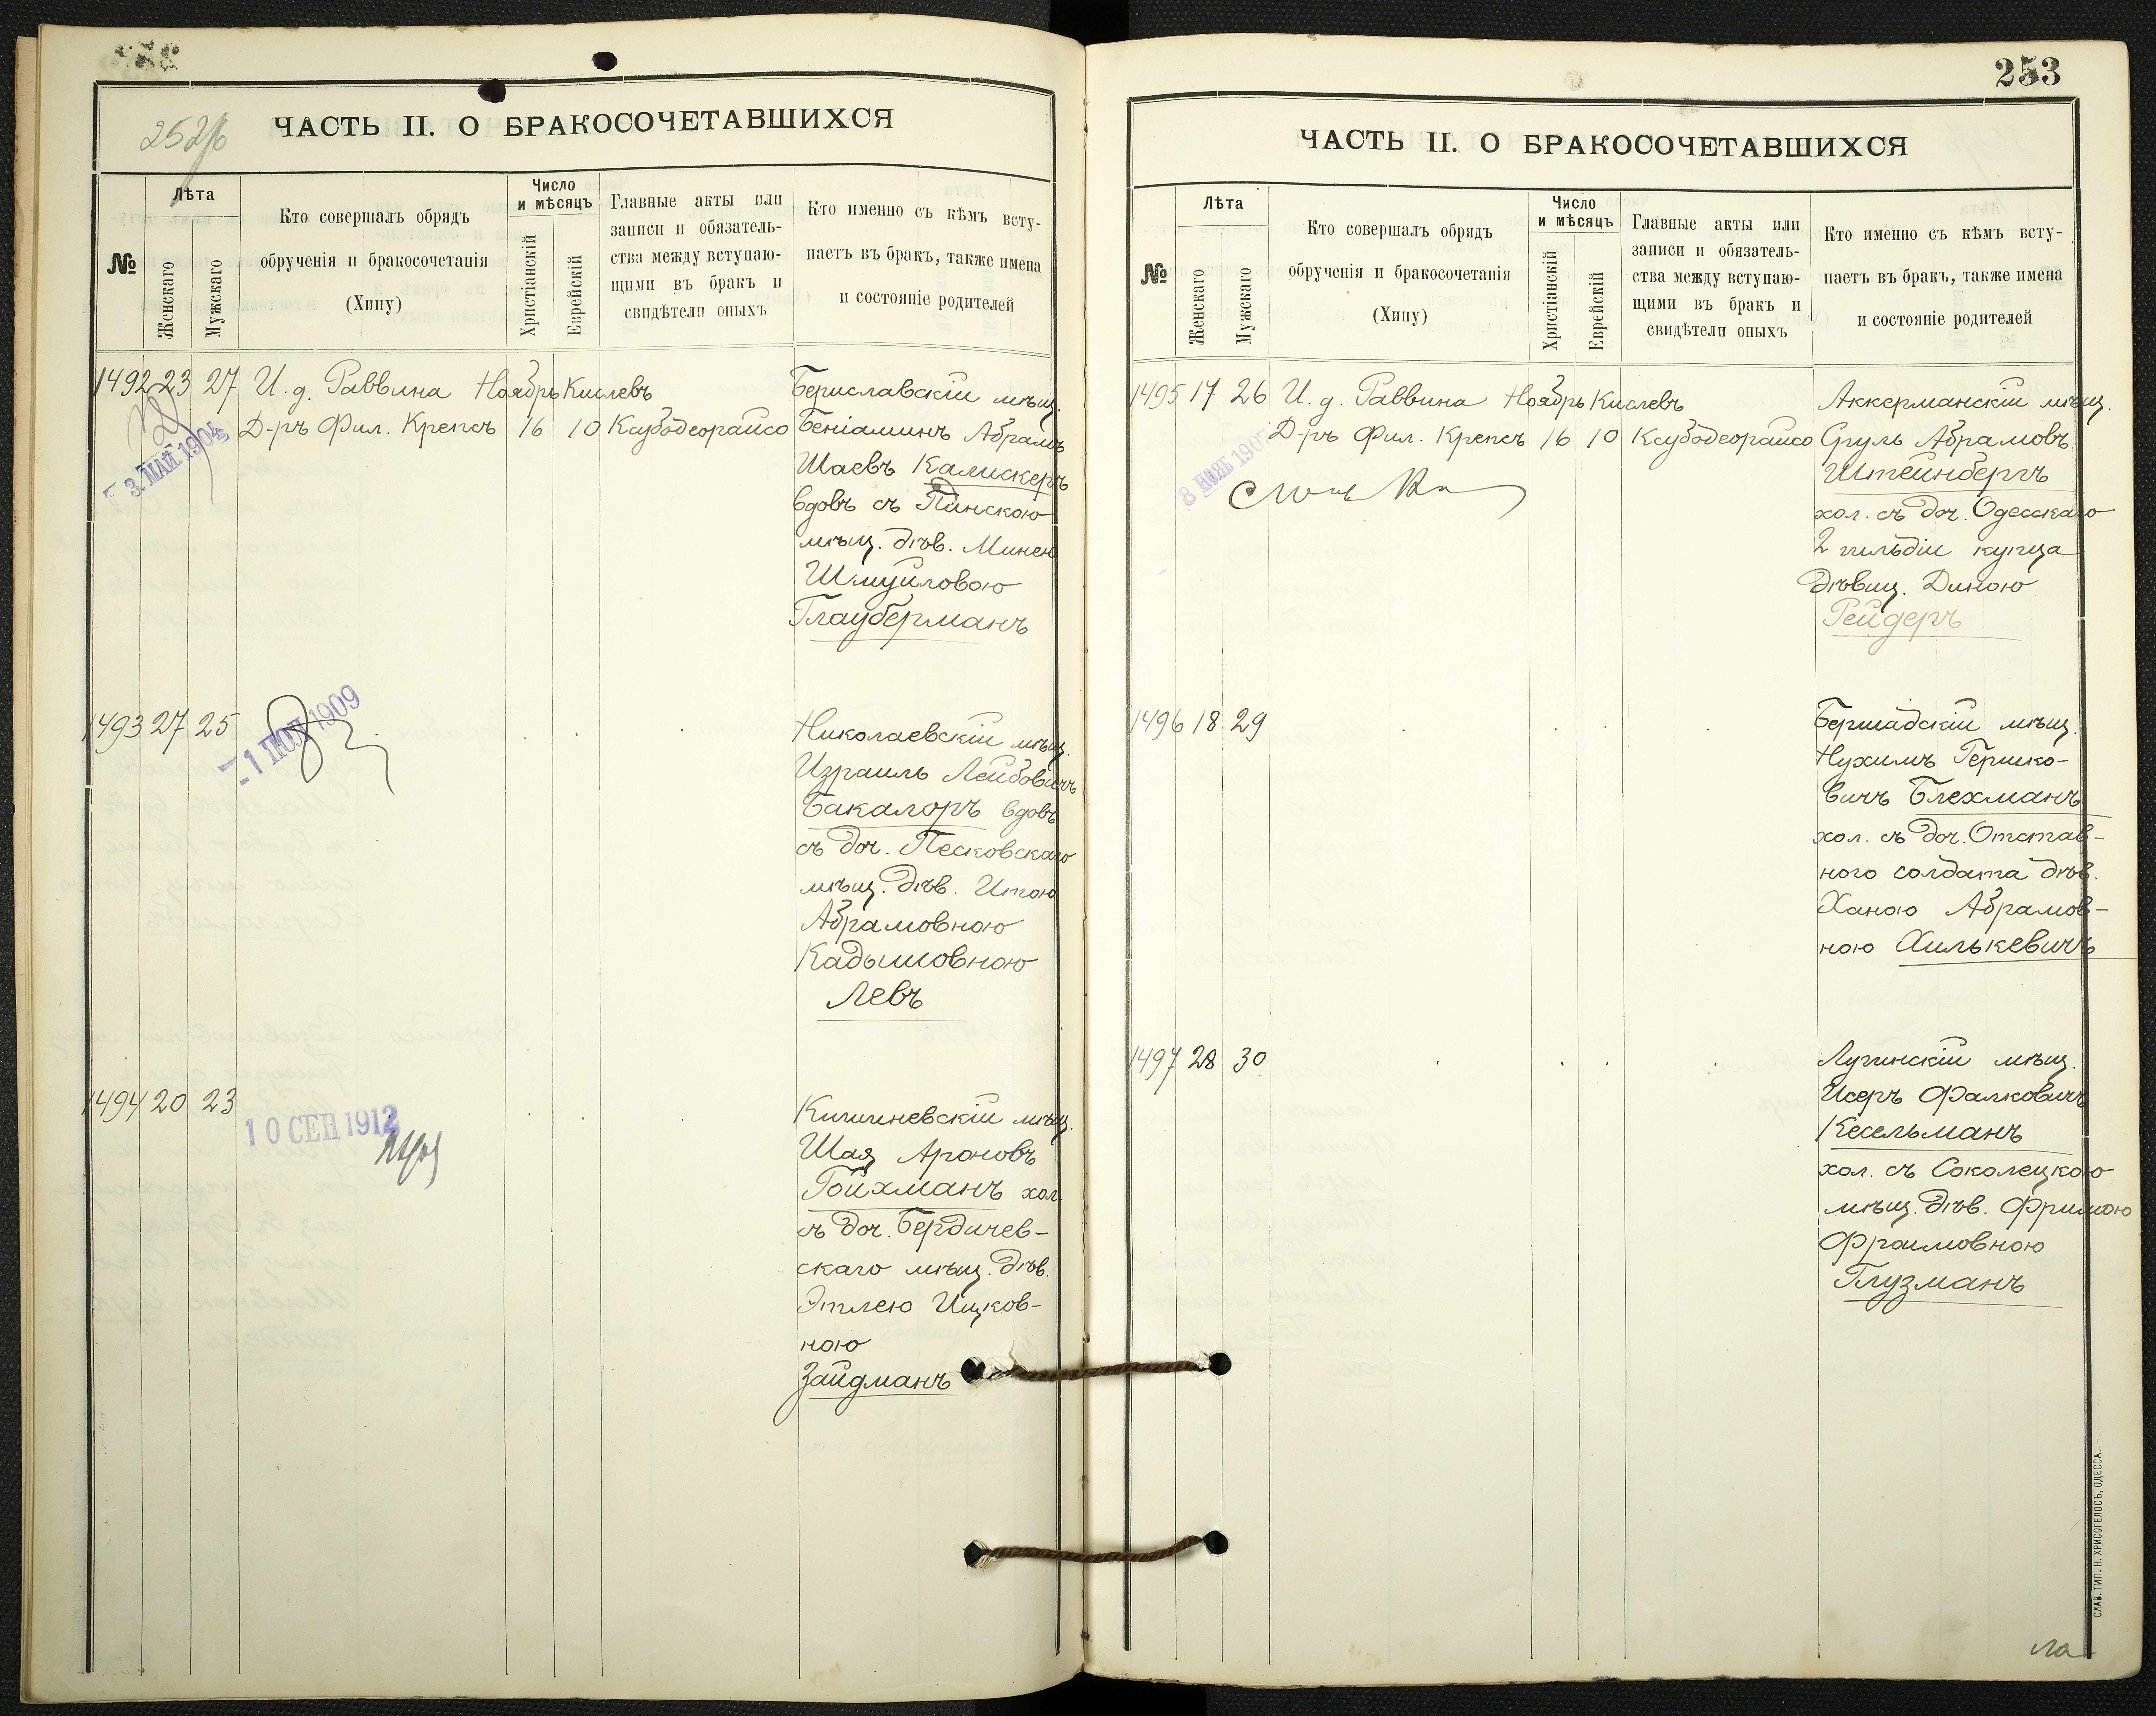 252
ЧАСТЬ II. О БРАКОСОЧЕТАВШИХСЯ
№
Лѣта
Женскаго
Мужскаго
Кто совершалъ обрядъ
обрученія и бракосочетанія
(Хипу)
Число
и мѣсяцъ
Христіанскій
Еврейскій
Главные акты или
записи и обязатель-
ства между вступаю-
щими въ бракъ и
свидѣтели оныхъ
Кто именно съ кѣмъ всту-
паетъ въ бракъ, также имена
и состояніе родителей
1492 23 27 И. д. Раввина Ноябрь Кислевъ
Д-ръ Фил. Крепсъ 16 10 Ксубодеорайсо
3 МАЙ 1904
Бериславскій мѣщ.
Беніаминъ Абрамъ
Шаевъ Калискеръ
вдовъ съ Пинскою
мѣщ. дѣв. Минею
Шмуиловою
Глауберманъ
1493 27 25
1 ІЮЛ 1909
Николаевскій мѣщ.
Израиль Лейбовичъ
Бакалоръ вдовъ
съ доч. Песковскаго
мѣщ. дѣв. Итою
Абрамовною
Кадышовною
Левъ
1494 20 23
10 СЕН 1912
Кишиневскій мѣщ.
Шая Ароновъ
Гойхманъ хол.
съ доч. Бердичев-
скаго мѣщ. дѣв.
Этлею Ицков-
ною
Зайдманъ
253
ЧАСТЬ II. О БРАКОСОЧЕТАВШИХСЯ
№
Лѣта
Женскаго
Мужскаго
Кто совершалъ обрядъ
обрученія и бракосочетанія
(Хипу)
Число
и мѣсяцъ
Христіанскій
Еврейскій
Главные акты или
записи и обязатель-
ства между вступаю-
щими въ бракъ и
свидѣтели оныхъ
Кто именно съ кѣмъ всту-
паетъ въ бракъ, также имена
и состояніе родителей
1495 17 26 И. д. Раввина Ноябрь Кислевъ
Д-ръ Фил. Крепсъ 16 10 Ксубодеорайсо
Аккерманскій мѣщ.
Сруль Абрамовъ
Штейнбергъ
хол. съ доч. Одесскаго
2 гильдіи купца
дѣвиц. Диною
Рейдеръ
1496 18 29
Бершадскій мѣщ.
Нухимъ Гершко-
вичъ Блехманъ
хол. съ доч. Отстав-
ного солдата дѣв.
Ханою Абрамов-
ною Хилькевичъ
1497 28 30
Лугинскій мѣщ.
Исеръ Фалковичъ
Кесельманъ
хол. съ Соколецкою
мѣщ. дѣв. Фримою
Фроимовною
Глузманъ
СЛАВ. ТИП. Н. ХРИСОГЕЛОСЪ, ОДЕССА.